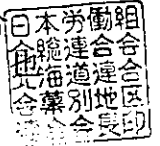 日本労働組
合総連合会
北海道連合
会別地区
会長印